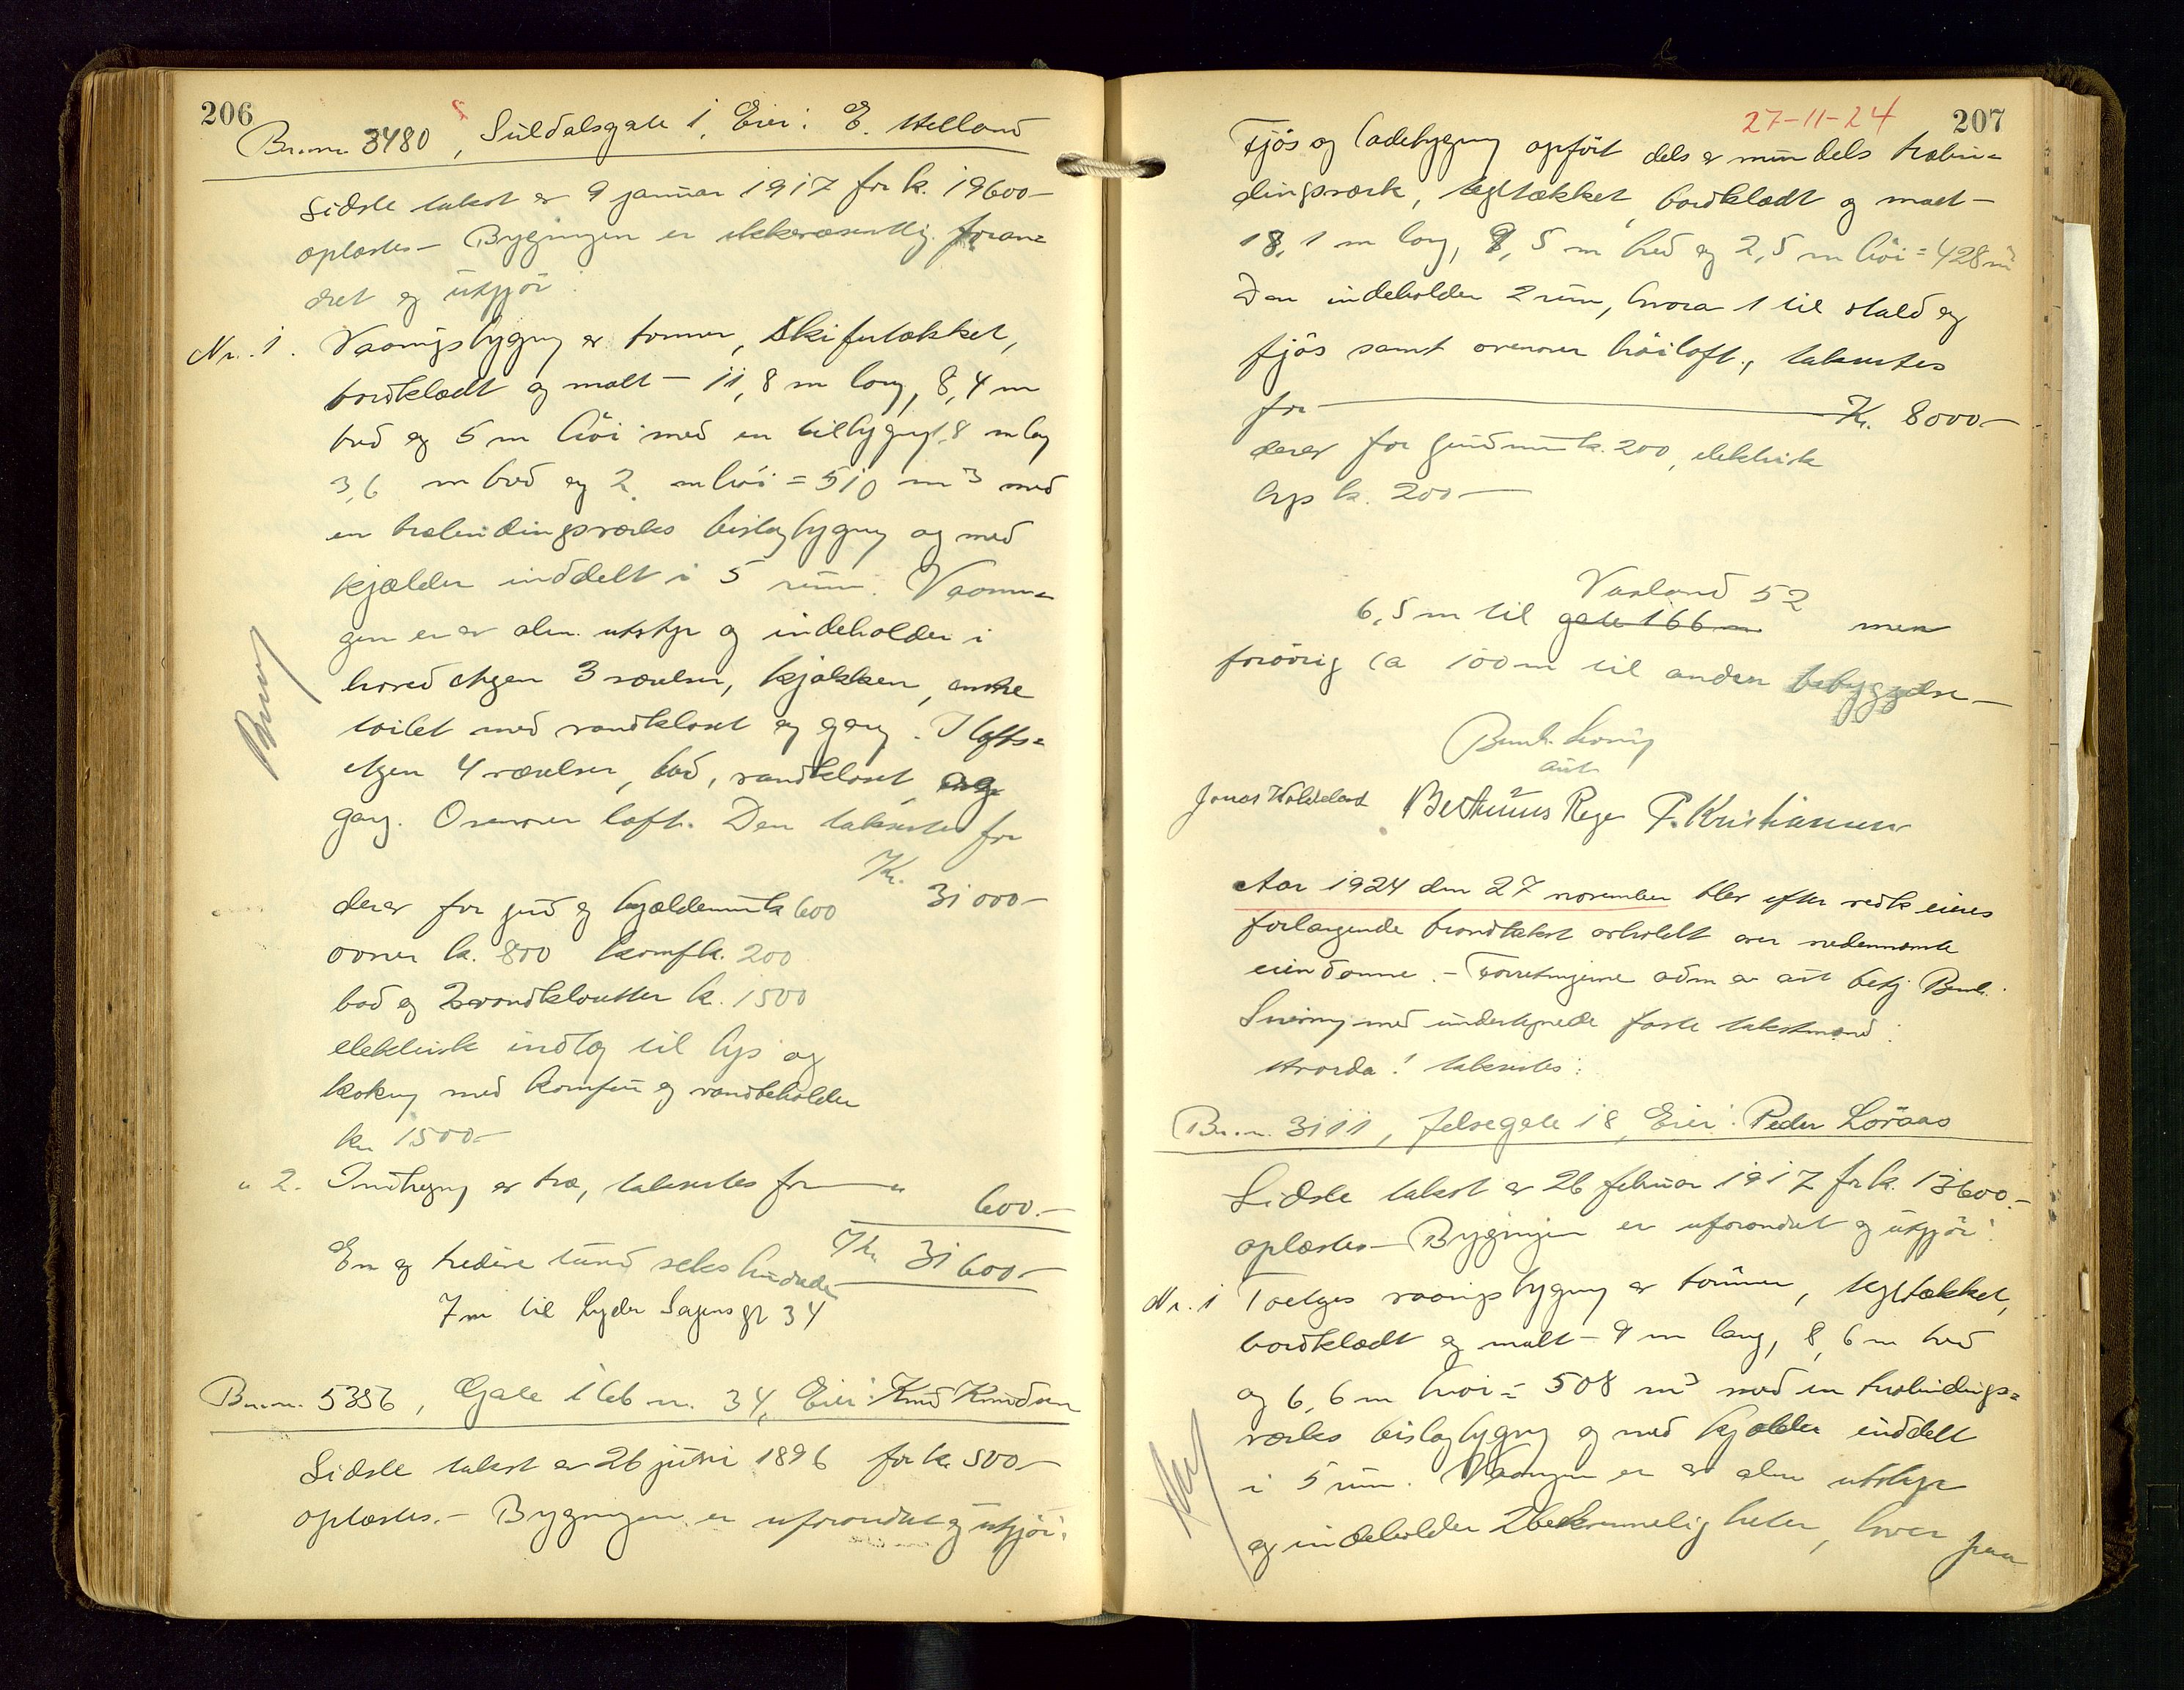 206
Br.nr. 3480, Suldalsgate 1, Eier: E. Helland
Sidste takst er 9 januar 1917 for k. 19600-
oplæstes - Bygningen er ikke væsentlig foran=
dret og utgjør:
Nr. 1. Vaaningsbygning av tømmer, skifertækket,
bordklædt og malt - 11,8 m lang, 8,4 m
bred og 5 m høi med en tilbygning 1,8 m lang
3,6 m bred og 2 m høi = 510 m3 med
en træbindingsværks bislagbygning og med
kjælder inddelt i 5 rum. Vaanin=
gen er av alm. utstyr og indeholder i
hovedetagen 3 værelser, kjøkken,
toilet med vandkloset og gang. I lofts=
etagen 4 værelser, bad, vandkloset og
gang. Ovenover loft. Den takseres for
Kr. 31000-
derav for grund og kjældermur k 600
ovner k. 800 komf k. 200
bad og 2 vandklosetter k. 1500
elektrisk indlæg til lys og
kokning med komfur og vandbeholder
kr 1500-
" 2. Indhegning av træ, takseres for " 600.-
Kr. 31600.-
En og tredive tusind seks hundrede
7 m til Lyder Sagensgt 34
Br.nr. 5356, Gate 166 nr. 34, Eier: Knud Knudsen
Sidste takst er 26 juni 1896 for k. 500-
oplæstes. - Bygningen er uforandret og utgjør:
27-11-24
207
Fjøs og ladebygning opført dels av mur dels træbin=
dingsværk, tegltækket, bordklædt og malt -
18,1 m lang, 9,5 m bred og 2,5 m høi = 428 m3
Den indeholder 2 rum, hvorav 1 til stald og
fjøs samt ovenover høiloft, takseres
for Kr. 8000-
derav for grundmur k. 200, elektrisk
lys k. 200-
Varland 52
6,5 m til gate 166 men
forøvrig ca 100 m til anden bebyggelse -
aut
Bertinius Rege P. Kristiansen
Aar 1924 den 27 november blev efter vedk eieres
forlangende brandtakst avholdt over nedennævnte
eiendomme. - Forretningerne adm av aut betj Bernh.
med undertegnede faste takstmænd:
Hvorda! takseres:
Br.nr. 3111, Jelsegate 18, Eier: Peder Loraas
Sidste takst er 26 februar 1917 for k. 13600.-
oplæstes - Bygningen er uforandret og utgjør:
Nr. 1 Toetages vaaningsbygning av tømmer, tegltækket,
bordklædt og malt - 9 m lang, 8,6 m bred
og 6,6 m høi = 508 m3 med en træbindings=
værks bislagbygning og med kjælder inddelt
i 5 rum. Vaaningen er av alm utstyr
og indeholder 2 bekvemmeligheter, hver paa